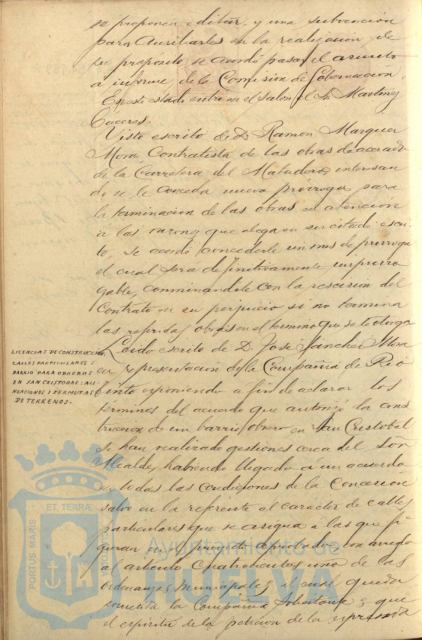 se proponen editar, y una subvención
para Auxiliarles en la realizacion de
su proposito, se acordó pasar el asunto
a informe de la Comision de Gobernacion.
En este estado entró en el Salon el Sr. Martinez
Caceres.
Visto escrito de D. Ramon Marquez
Mora, Contratista de las obras de
de la Carretera del Matadero,
se le conceda nueva prorroga para
la terminacion de las obras en atencion
a las razones que alega en su citado escri-
to, se acordó concederle un mes de prorroga
el cual será definitivamente improrro-
gable, conminandole con la rescision del
Contrato en perjuicio si no termina
las referidas obras en el termino que se le otorga
LICENCIAS DE CONSTRUCCION
CALLES PARTICULARES
BARRIO PARA OBREROS
EN SAN CRISTOBAL
Y PERMUTAS
DE TERRENOS.
Leido escrito de D. José Sanchez Mora
en representacion de la Compañia de Rio
Tinto exponiendo a fin de aclarar los
terminos del acuerdo que autorizó la cons-
truccion de un barrio obrero en San Cristobal
se han realizado gestiones cerca del Señor
Alcalde, habiendo llegado a un acuerdo
en todas las condiciones de la Concesion
salvo en la referente al caracter de calles
particulares que se asigna a las que fi-
guran en el proyecto aprobado, con arreglo
al articulo Cuatrocientos uno de las
ordenanzas Municipales, al cual queda
sometida la Compañia solicitante y que
el espiritu de la peticion de la expresada
PORTUS MARIS
ET TERRA
Ayuntamiento de
HUELVA